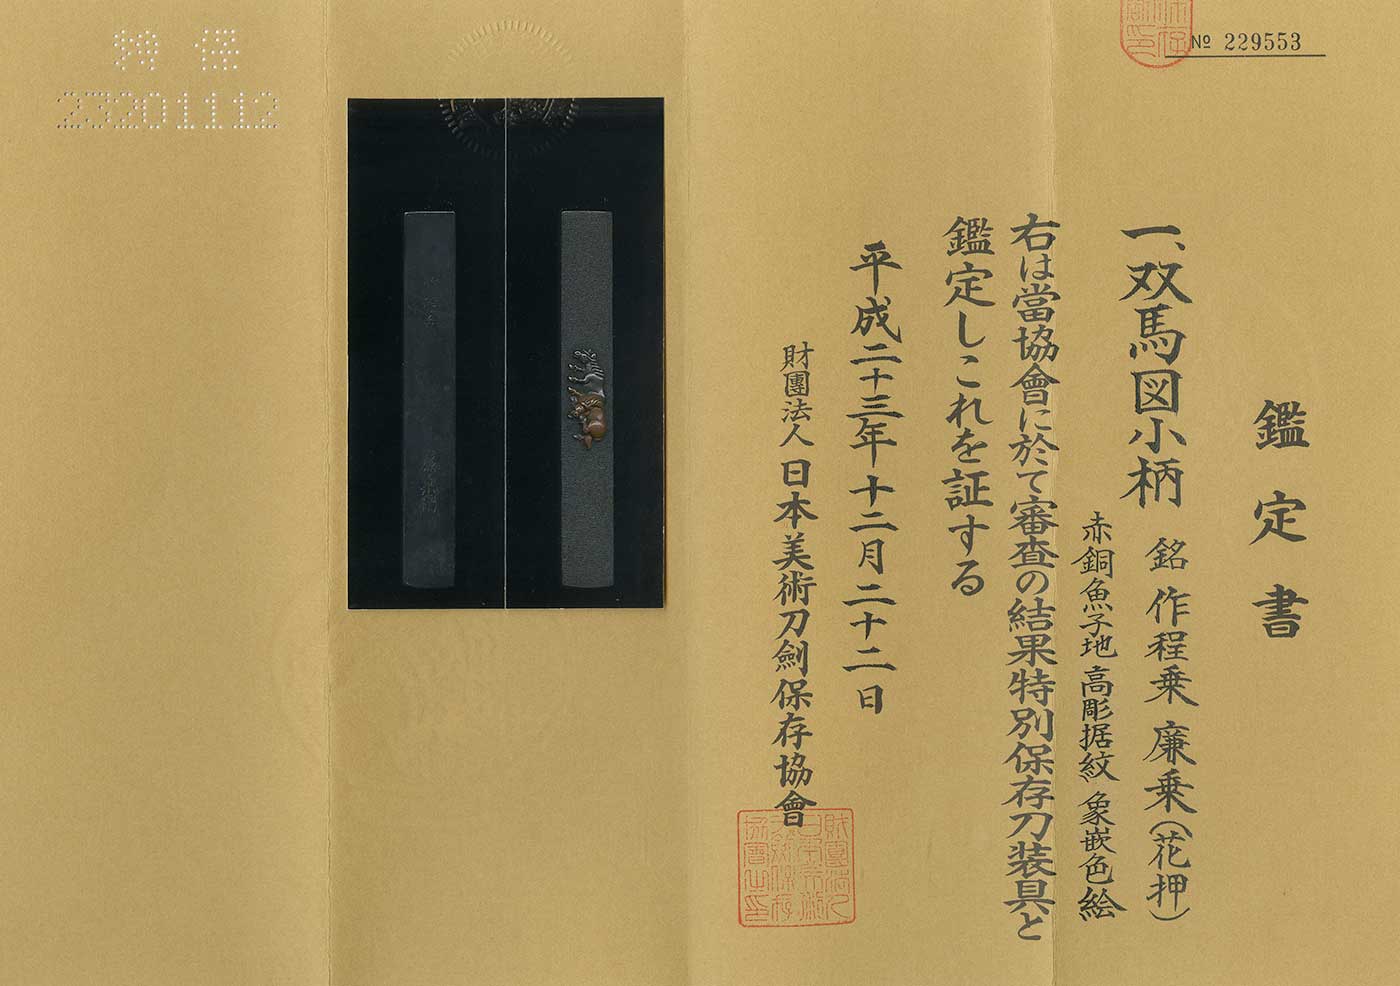 № 229553
鑑定書
一、双馬図小柄 銘 作程乗 廉乗(花押)
赤銅魚子地高彫据紋象嵌色絵
右は當協會に於て審査の結果特別保存刀装具と
鑑定しこれを証する
平成二十三年十二月二十二日
財團法人 日本美術刀劍保存協會
特保
23201112